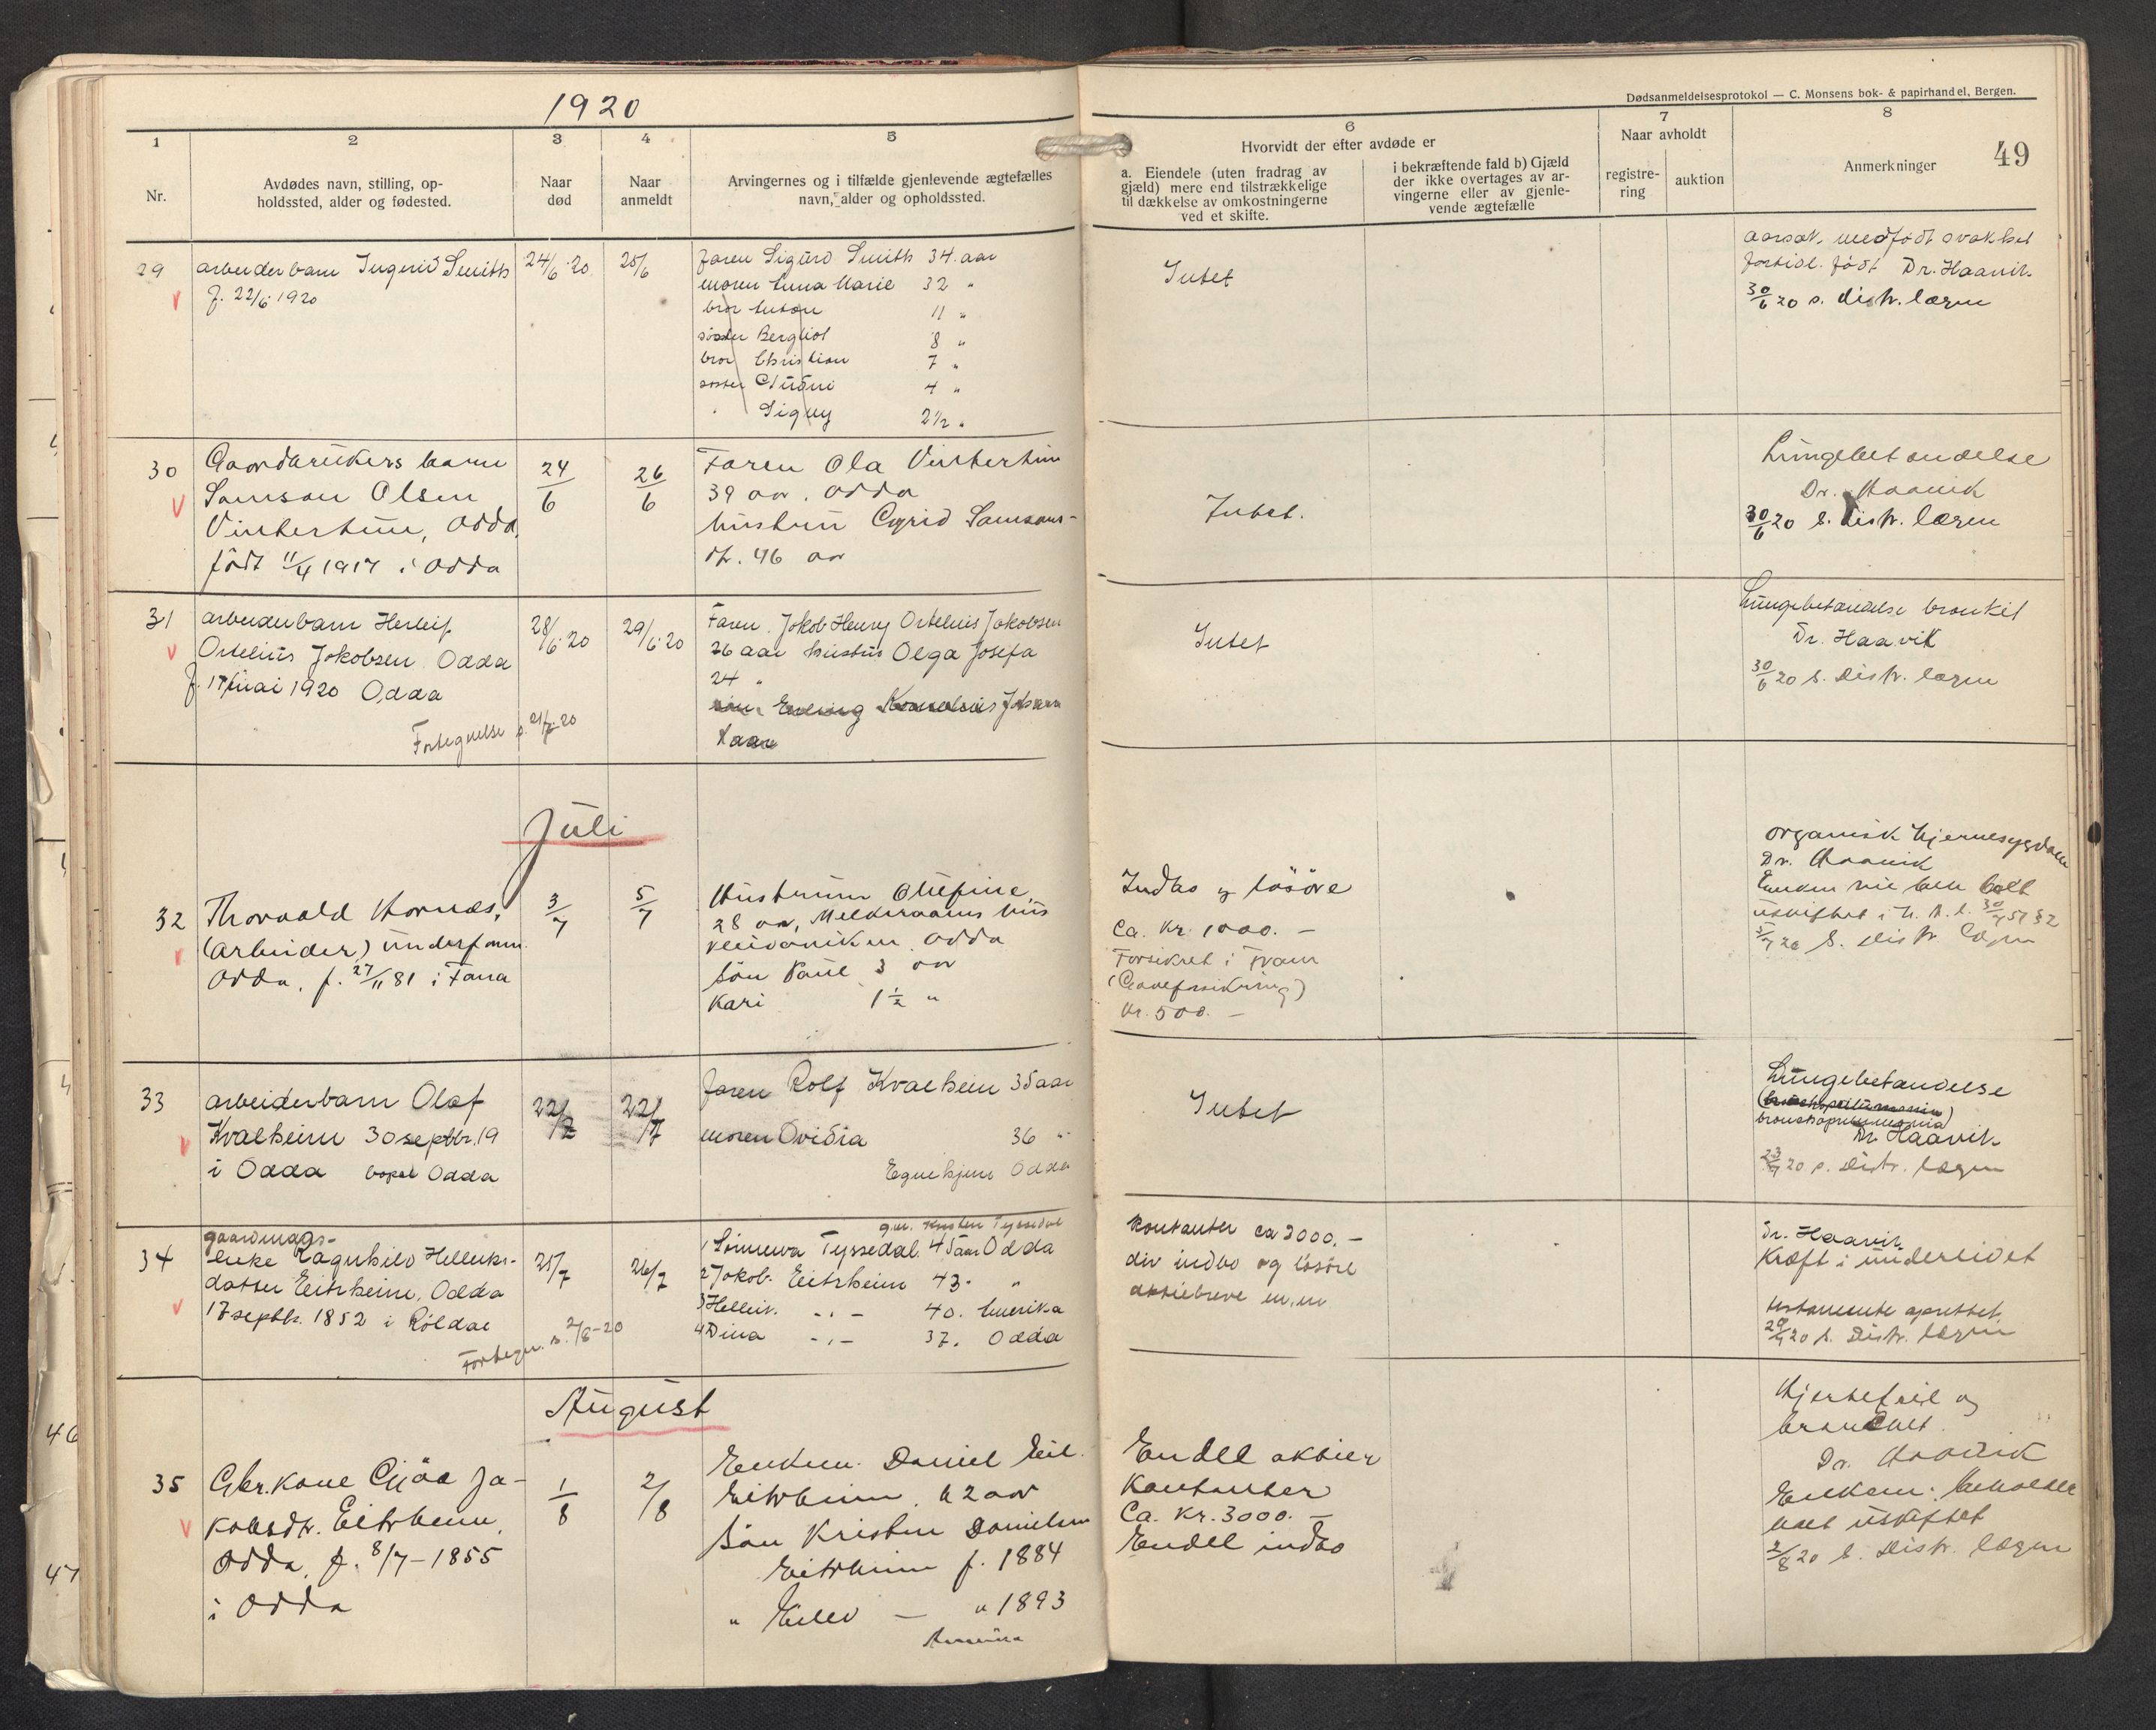 1920
Dødsanmeldelsesprotokol — C. Monsens bok- & papirhandel, Bergen.
49
1
Nr.
2
Avdødes navn, stilling, op-
holdssted, alder og fødested.
3
Naar
død
4
Naar
anmeldt
5
Arvingernes og i tilfælde gjenlevende ægtefælles
navn, alder og opholdssted.
6
Hvorvidt der efter avdøde er
a. Eiendele (uten fradrag av
gjæld) mere end tilstrækkelige
til dækkelse av omkostningerne
ved et skifte.
i bekræftende fald b) Gjæld
der ikke overtages av ar-
vingerne eller av gjenle-
vende ægtefælle
7
Naar avholdt
registre-
ring
auktion
8
Anmerkninger
29
arbeiderbarn Ingerid Smith
f. 22/6 1920
24/6 20
25/6
faren Sigurd Smith 34 aar
moren Anna Marie 32 "
bror Anton 11 "
søster Bergliot 8 "
bror Christian 7 "
søster Gudrun 4 "
" Signy 2½ "
Intet
aarsak. medfødt svakhet
fortidl. født Dr. Haavik
30/6 20 s. distr. lægen
30
Gaardbrukers barn
Samson Olsen
Vintertun, Odda,
født 11/4 1917 i Odda
24/6
26/6
Faren Ola Vintertun
39 aar, Odda
hustru Cyrid Samsons-
dt. 46 aar
Intet.
Lungebetændelse
Dr. Haavik
30/6 20 s. distr. lægen
31
arbeiderbarn Herleif
Ortelius Jakobsen Odda
f. 17 mai 1920 Odda
Fortegnelse s. 21/7-20
28/6 20
29/6 20
Faren. Jakob Henry Ortelius Jakobsen
26 aar hustru Olga Josefa
24 "
Intet
Lungebetændelse bronkit
Dr. Haavik
30/6 20 s. Distr. lægen
Juli
32
Thorvald Hornæs,
(Arbeider)
Odda, f. 27/11 81 i Fana
3/7
5/7
Hustruen Olufine
28 aar,
Odda
Søn Paul 3 aar
Kari 1½ "
Indbo og løsøre
Ca. kr. 1000. —
Forsikret i Fram
(Gaveforsikring)
kr. 500. —
organisk hjernesygdom
Dr. Haavik
s. distr. lægen
33
arbeiderbarn Olaf
Kvalheim 30 septbr. 19
i Odda bopæl Odda
22/7
22/7
faren Rolf Kvalheim 35 aar
moren Ovidia 36 "
Egnehjem Odda
Intet
Lungebetændelse
bronchopneumonia
Dr. Haavik
23/7 20 s. Distr. lægen
34
gaardmands-
enke Ragnhild Helleiks-
datter Eitrheim, Odda
17 septbr. 1852 i Røldal
Fortegn. s. 2/8-20
25/7
26/7
g.m. Kristen Tyssedal
1 Sønneva Tyssedal 45 aar Odda
2 Jakob Eitrheim 43. "
3 Helleik. -,- 40. Amerika
4 Dina -,- 37. Odda
Kontanter ca 3000. —
div indbo og løsøre
aktiebreve m.m
Dr. Haavik
Kræft i underlivet
testamente oprettet.
29/7 20 s. Distr. lægen
August
35
Gbr. kone Gjøa Ja-
kobsdtr. Eitrheim,
Odda, f. 8/7-1855
i Odda
1/8
2/8
Enkem. Daniel Eil.
Eitrheim, 62 aar
Søn Kristen Danielsen
Eitrheim f. 1884
" Eilev — " 1893
Amerika
Endel aktier
Kontanter
Ca. kr. 3000. —
Endel indbo
Hjertefeil og
Dr. Haavik
Enkem. beholder
boet uskiftet
2/8 20 s. Distr. lægen
46
47